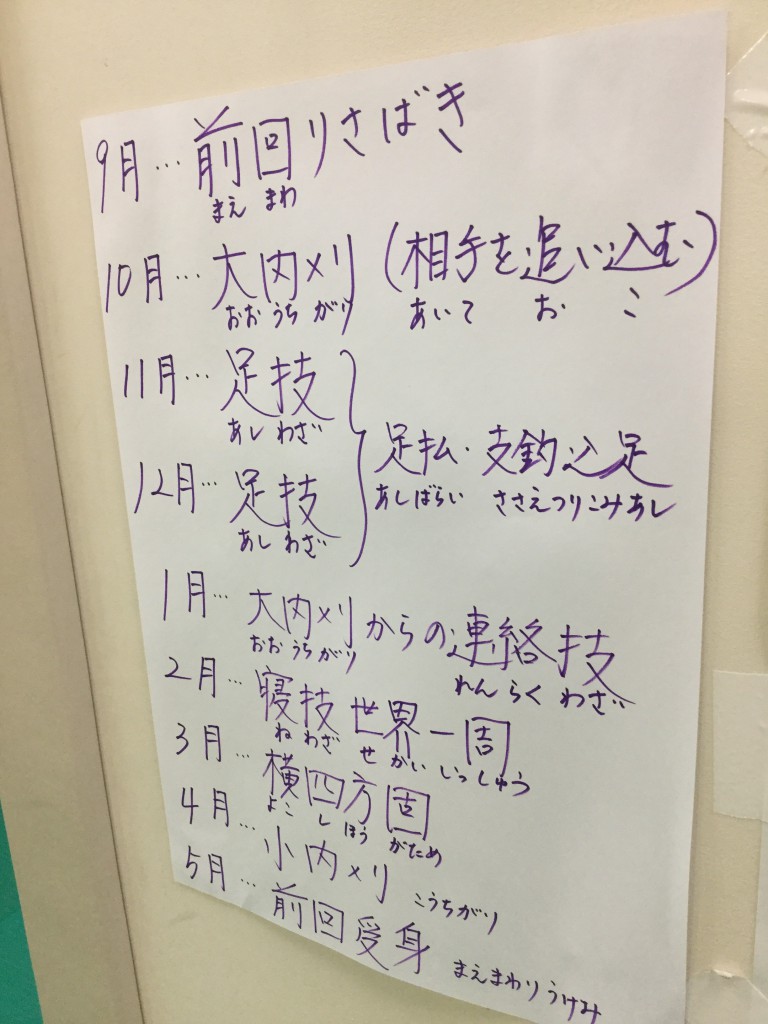 9月…前回りさばき
まえ まわ
10月…大内刈(相手を追い込む)
おおうちがり あいて お こ
11月…足技
あしわざ
足払・支釣込足
あしばらい ささえつりこみあし
12月…足技
あしわざ
1月…大内刈からの連絡技
おおうちがり れんらくわざ
2月…寝技世界一周
ねわざ せかいいっしゅう
3月…横四方固
よこしほうがため
4月…小内刈 こうちがり
5月…前回受身 まえまわりうけみ